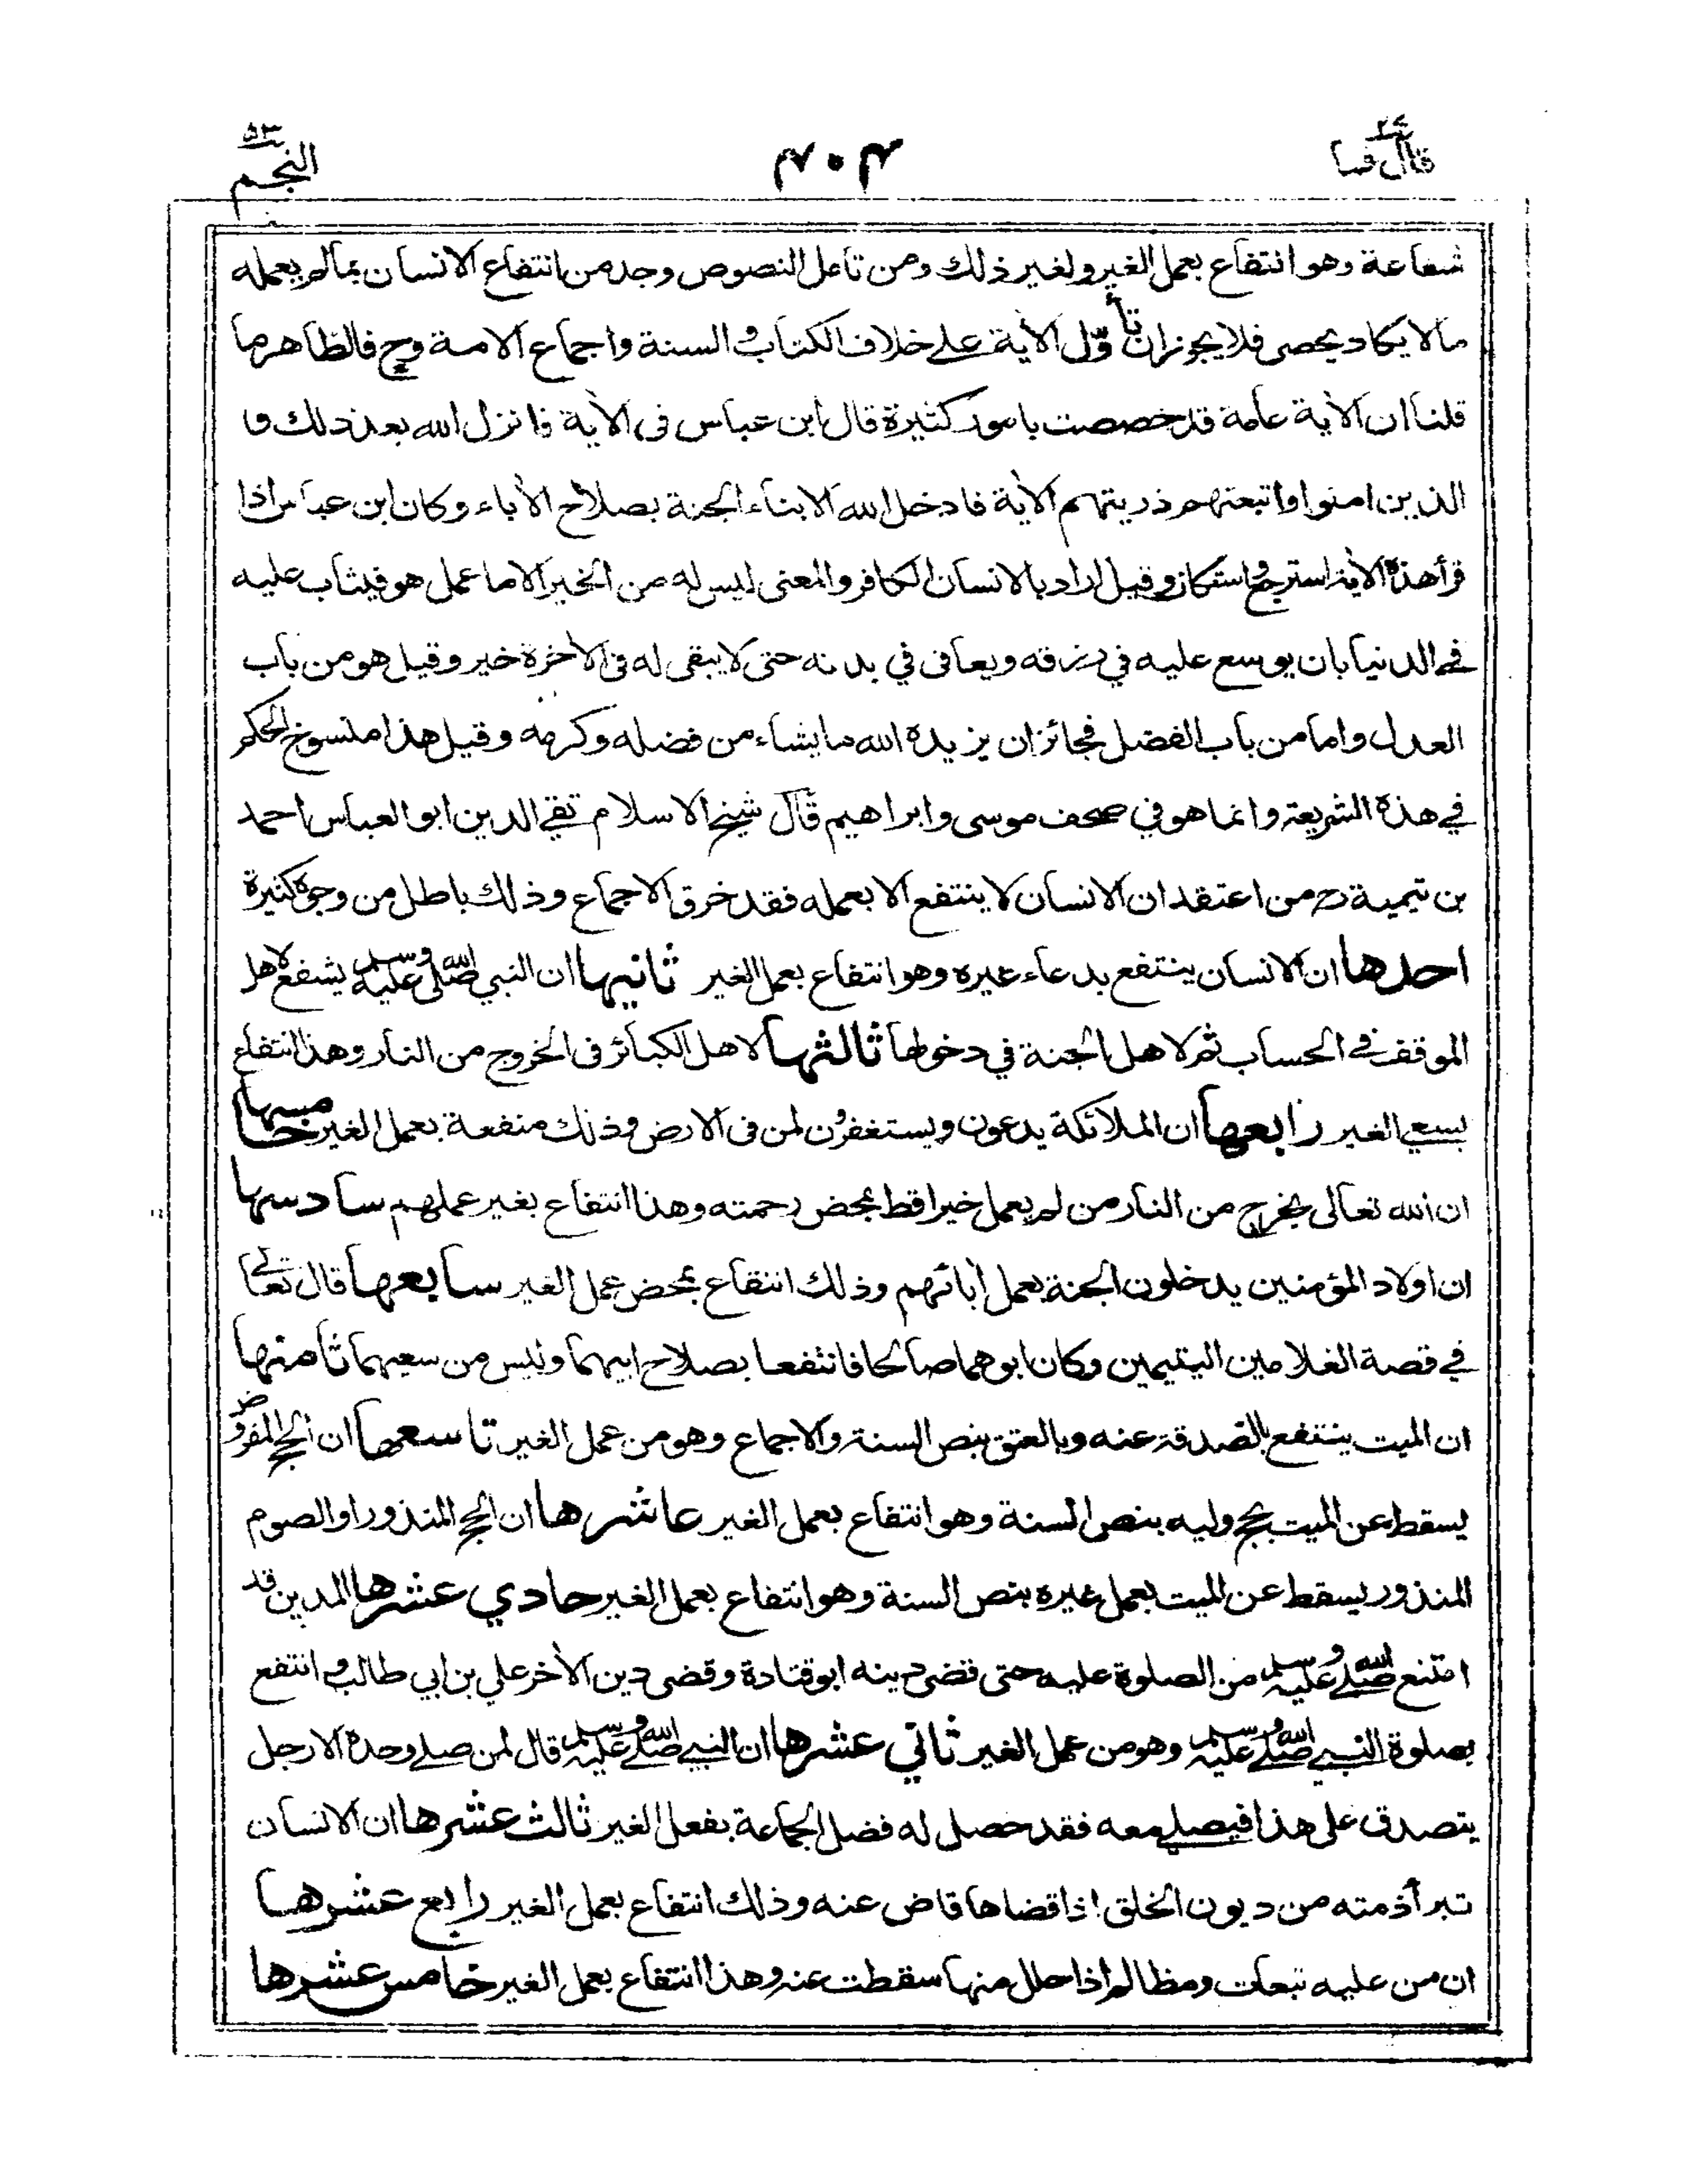 قال فما ٢٧
٤٠٤
النجم ٥٣
شفاعة وهو انتفاع بعمل الغير ولغير ذلك ومن تأمل النصوص وجد من انتفاع الانسان بمالم يعمله
مالا يكاد يحصى فلا يجوز ان تأوّل الأية على خلاف الكتاب و السنة واجماع الامة وح فالظاهر ما
قلنا ان الأية عامة قد خصصت بامور كثيرة قال ابن عباس فى الأية فانزل الله بعد ذلك و
الذين امنوا واتبعتهم ذريتهم الأية فادخل الله الابناء الجنة بصلاح الأباء وكان ابن عباس اذا
قرأ هذه الأية استرجع و استكان وقيل اراد بالانسان الكافر والمعنى ليس له من الخير الا ما عمل هو فيثاب عليه
في الدنيا بان يوسع عليه في رزقه ويعافى في بدنه حتى لا يبقى له فى الأخرة خير وقيل هو من باب
العدل واما من باب الفضل فجائز ان يزيده الله ما يشاء من فضله وكرمه وقيل هذا منسوخ الحكم
في هذه الشريعة وانما هو في صحف موسى وابراهيم قال شيخ الاسلام تقي الدين ابو العباس احمد
بن تيمية رح من اعتقد ان الانسان لا ينتفع الا بعمله فقد خرق الاجماع وذلك باطل من وجوه كثيرة
احدها ان الانسان ينتفع بدعاء غيره وهو انتفاع بعمل الغير ثانيها ان النبي صلى الله عليه وسلم يشفع لاهل
الموقف في الحساب ثم لاهل الجنة في دخولها ثالثها لاهل الكبائر فى الخروج من النار وهذا انتفاع
بسعي الغير رابعها ان الملائكة يدعون ويستغفرون لمن فى الارض وذلك منفعة بعمل الغير خامسها
ان الله تعالى يخرج من النار من لم يعمل خيرا قط بمحض رحمته وهذا انتفاع بغير عملهم سادسها
ان اولاد المؤمنين يدخلون الجنة بعمل أبائهم وذلك انتفاع بمحض عمل الغير سابعها قال تعالى
في قصة الغلامين اليتيمين وكان ابوهما صالحا فانتفعا بصلاح ابيهما وليس من سعيهما ثامنها
ان الميت ينتفع بالصدقة عنه وبالعتق بنص السنة والاجماع وهو من عمل الغير تاسعها ان الحج المفروض
يسقط عن الميت بحج وليه بنص السنة وهو انتفاع بعمل الغير عاشرها ان الحج المنذور او الصوم
المنذور يسقط عن الميت بعمل غيره بنص السنة وهو انتفاع بعمل الغير حادي عشرها المدين قد
امتنع صلى الله عليه وسلم من الصلوة عليه حتى قضى دينه ابو قتادة وقضى دين الأخر علي بن ابي طالب و انتفع
بصلوة النبي صلى الله عليه وسلم وهو من عمل الغير ثاني عشرها ان النبي صلى الله عليه وسلم قال لمن صلى وحده الا رجل
يتصدق على هذا فيصلي معه فقد حصل له فضل الجماعة بفعل الغير ثالث عشرها ان الانسان
تبرأ ذمته من ديون الخلق اذا قضاها قاض عنه وذلك انتفاع بعمل الغير رابع عشرها
ان من عليه تبعات ومظالم اذا حلل منها سقطت عنه وهذا انتفاع بعمل الغير خامس عشرها